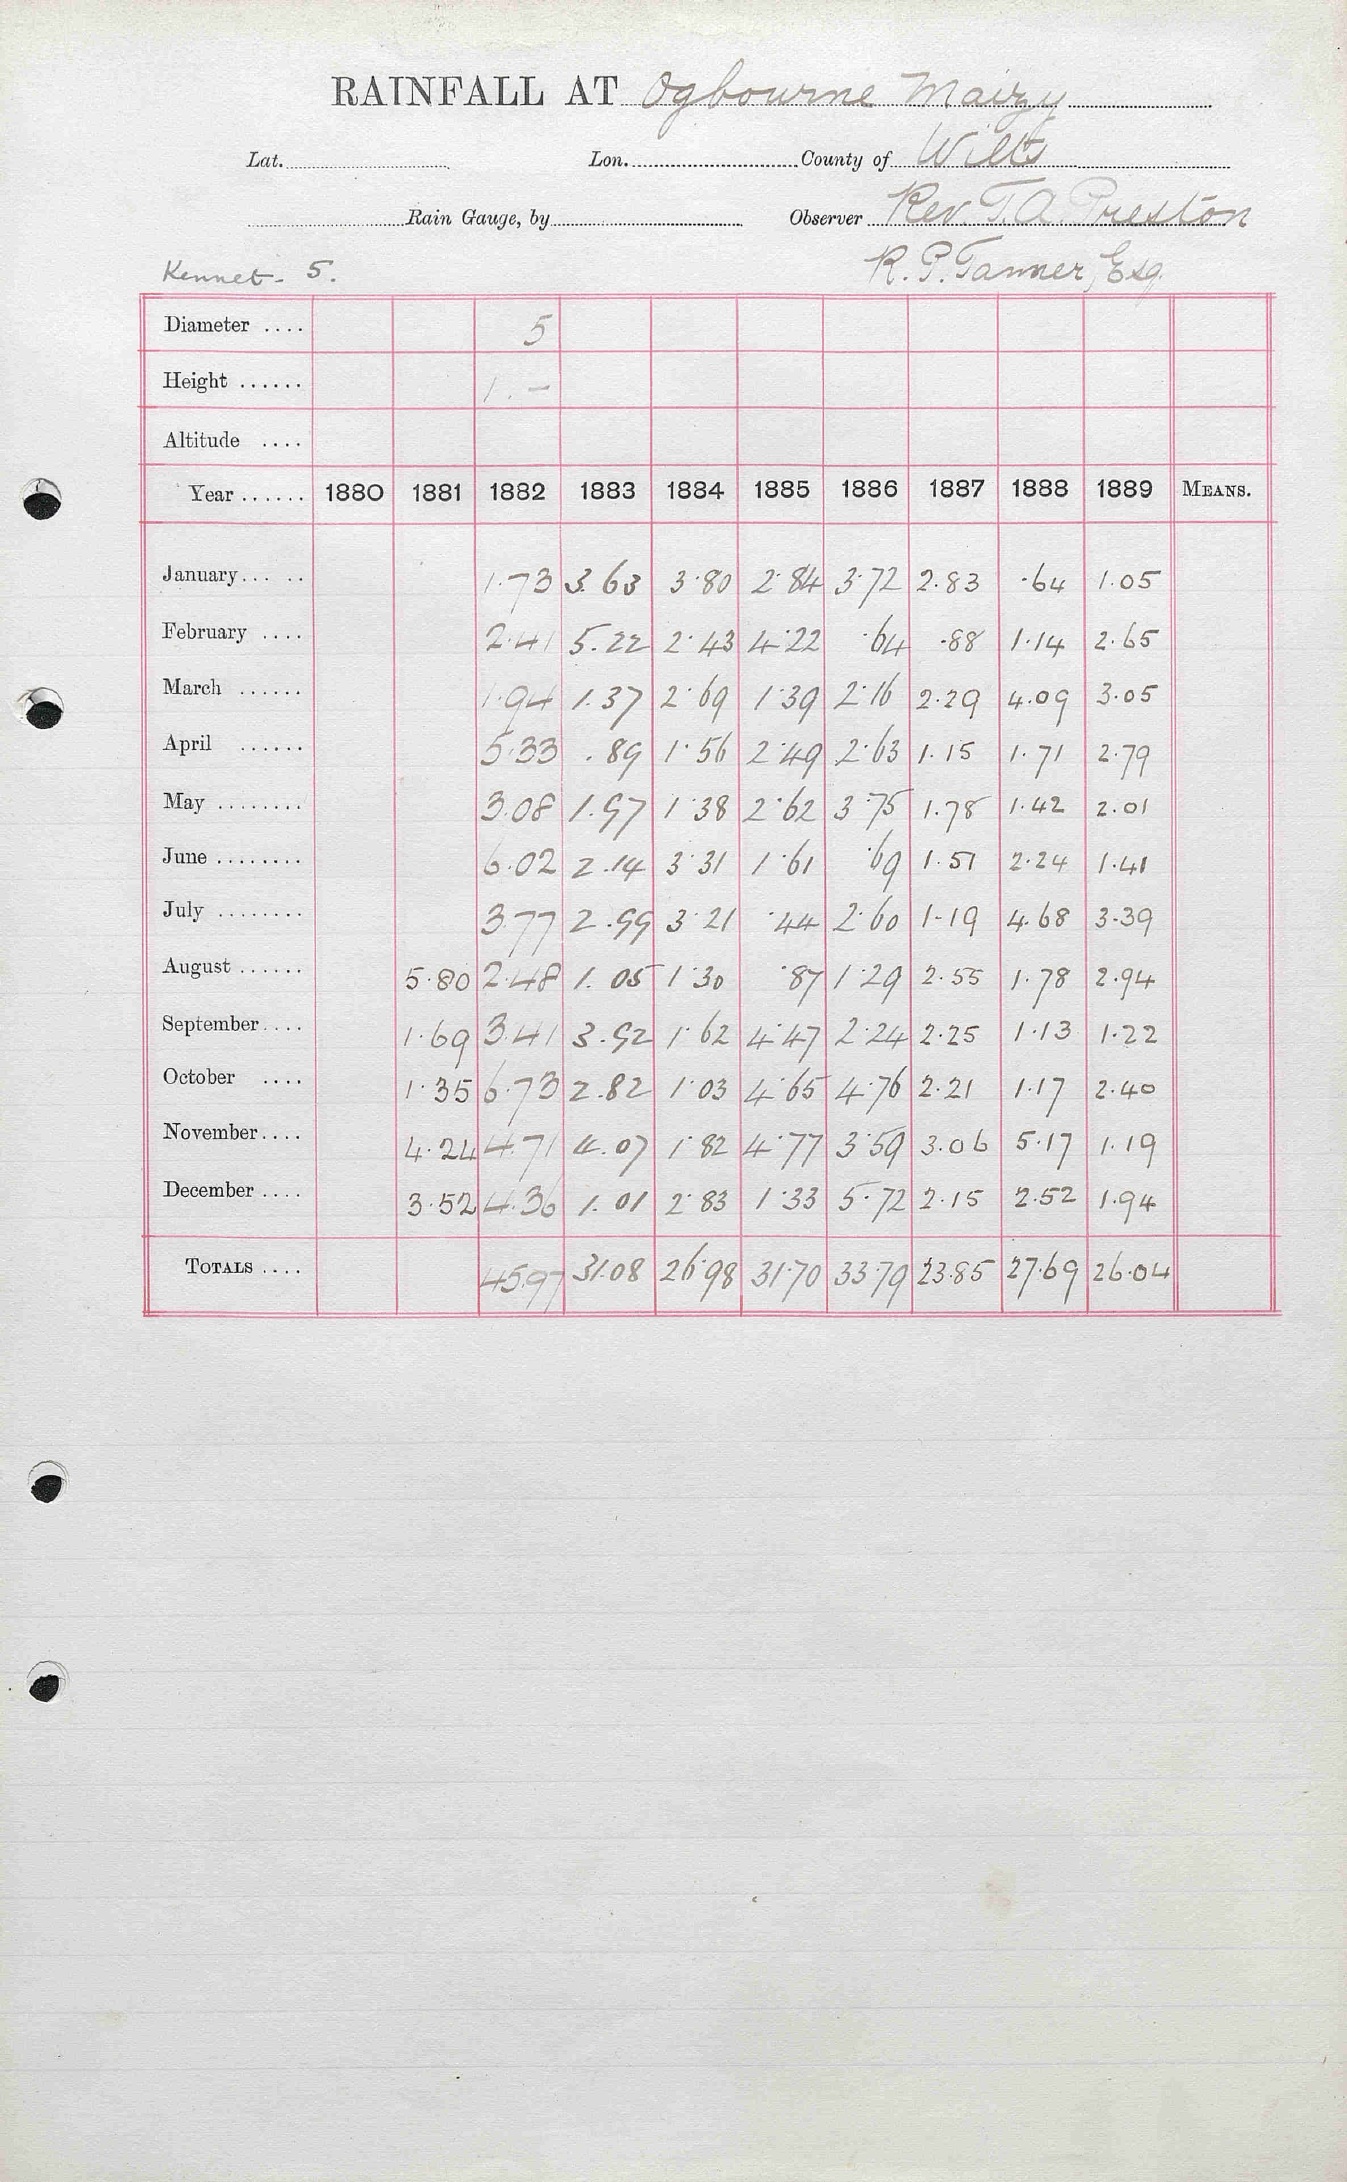 RAINFALL AT Ogbourne Maizy
Lat. Lon. County of Wilts
Rain Gauge, by Observer Rev. T. A. Preston
Kennet - 5. R. P. Tanner, Esq.
Diameter .... 5
Height ...... 1. -
Altitude ....
Year ...... 1880 1881 1882 1883 1884 1885 1886 1887 1888 1889 MEANS.
January ... .. 1.73 3.63 3.80 2.84 3.72 2.83 .64 1.05
February .... 2.41 5.22 2.43 4.22 .64 .88 1.14 2.65
March ...... 1.94 1.37 2.69 1.39 2.16 2.29 4.09 3.05
April ...... 5.33 .89 1.56 2.49 2.63 1.15 1.71 2.79
May ........ 3.08 1.97 1.38 2.62 3.75 1.78 1.42 2.01
June ........ 6.02 2.14 3.31 1.61 .69 1.51 2.24 1.41
July ........ 3.77 2.99 3.21 .44 2.60 1.19 4.68 3.39
August ...... 5.80 2.48 1.05 1.30 .87 1.29 2.55 1.78 2.94
September .... 1.69 3.41 3.92 1.62 4.47 2.24 2.25 1.13 1.22
October .... 1.35 6.73 2.82 1.03 4.65 4.76 2.21 1.17 2.40
November .... 4.24 4.71 4.07 1.82 4.77 3.59 3.06 5.17 1.19
December .... 3.52 4.36 1.01 2.83 1.33 5.72 2.15 2.52 1.94
TOTALS .... 45.97 31.08 26.98 31.70 33.79 23.85 27.69 26.04